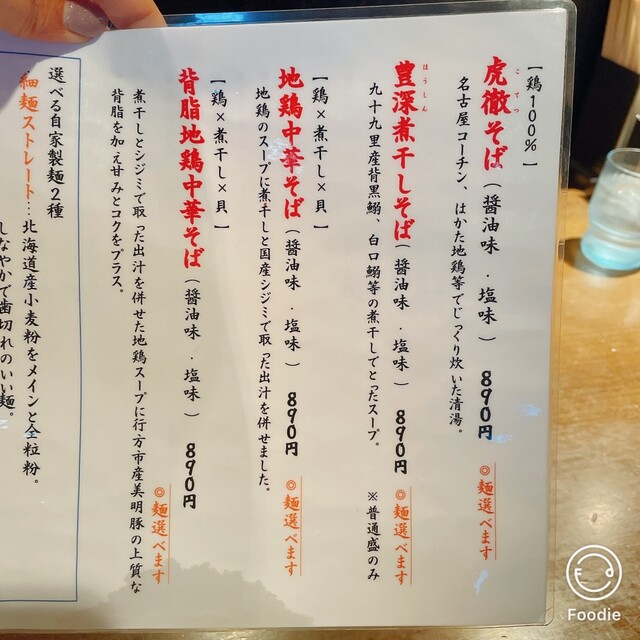 【鶏100%】
こてつ
虎徹そば（醤油味・塩味）890円
◎麺選べます
名古屋コーチン、はかた地鶏等でじっくり炊いた清湯。
ほうしん
豊深煮干しそば（醤油味・塩味）890円
◎麺選べます
九十九里産背黒鰯、白口鰯等の煮干しでとったスープ。 ※普通盛のみ
【鶏×煮干し×貝】
地鶏中華そば（醤油味・塩味）890円
◎麺選べます
地鶏のスープに煮干しと国産シジミで取った出汁を併せました。
【鶏×煮干し×貝】
背脂地鶏中華そば（醤油味・塩味）890円
◎麺選べます
煮干しとシジミで取った出汁を併せた地鶏スープに行方市産美明豚の上質な
背脂を加え甘みとコクをプラス。
選べる自家製麺2種
細麺ストレート…北海道産小麦粉をメインと全粒粉。
しなやかで歯切れのいい麺。
Foodie